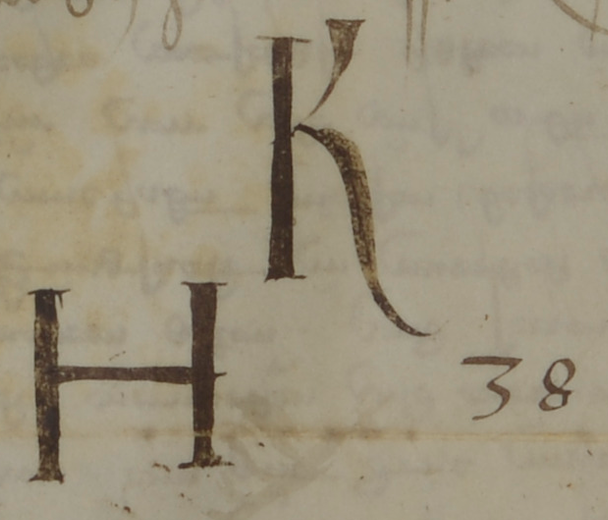 K
H
38